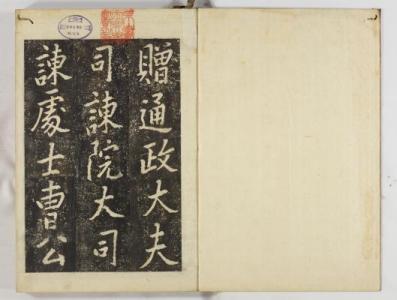 贈通政大夫
司諫院大司
諫處士曺公